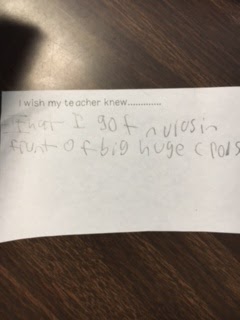 I wish my teacher knew.............
That I got nvrosin
frunt of big huge crods